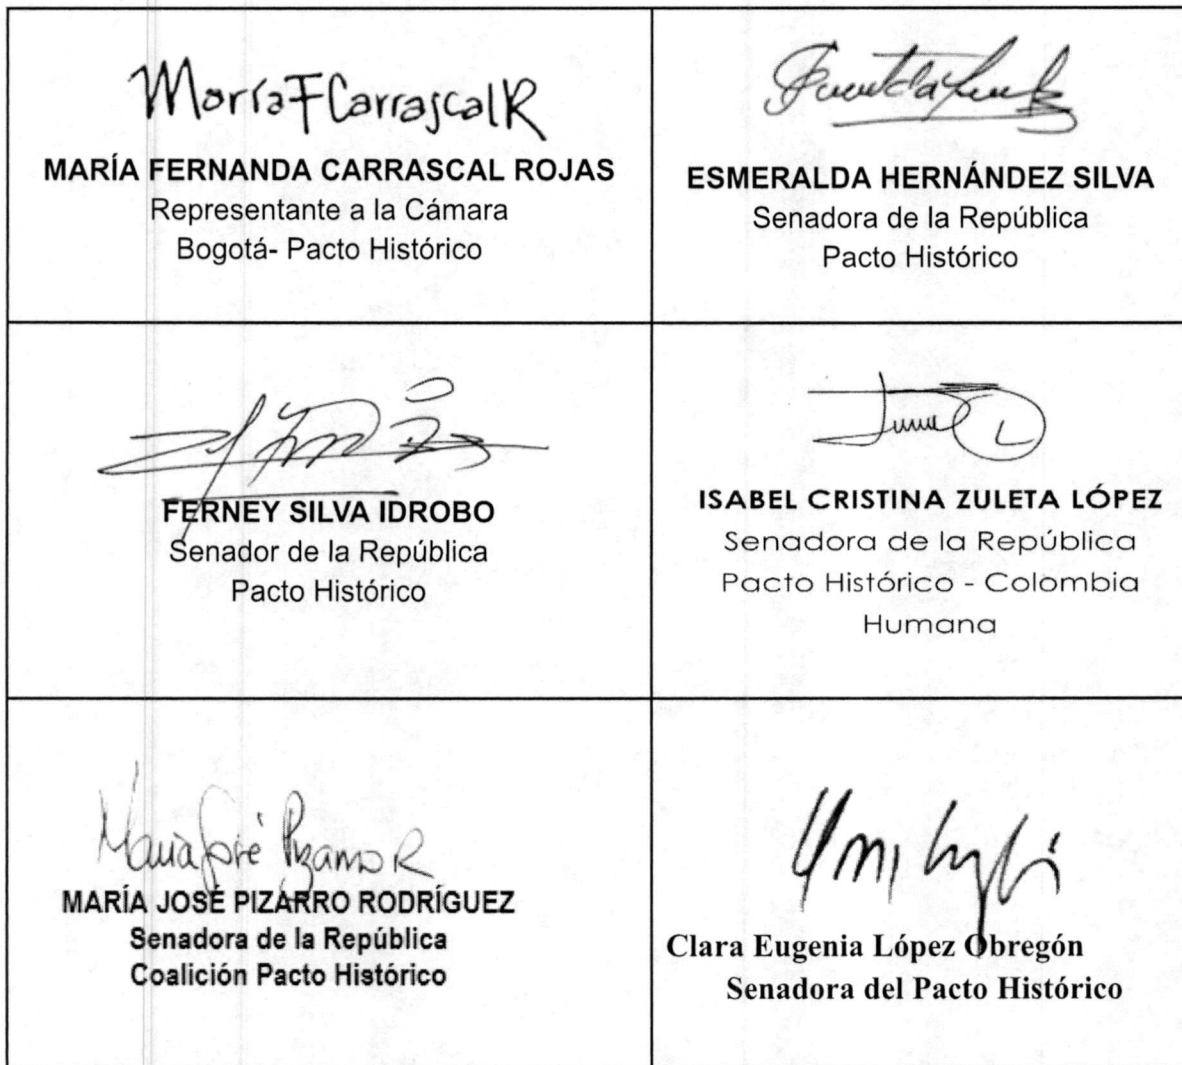 María F Carrascal R
MARÍA FERNANDA CARRASCAL ROJAS
Representante a la Cámara
Bogotá- Pacto Histórico
ESMERALDA HERNÁNDEZ SILVA
Senadora de la República
Pacto Histórico
FERNEY SILVA IDROBO
Senador de la República
Pacto Histórico
ISABEL CRISTINA ZULETA LÓPEZ
Senadora de la República
Pacto Histórico - Colombia
Humana
María José Pizarro R
MARÍA JOSÉ PIZARRO RODRÍGUEZ
Senadora de la República
Coalición Pacto Histórico
Clara Eugenia López Obregón
Senadora del Pacto Histórico